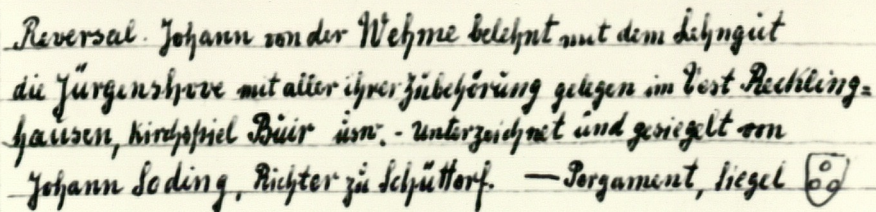 Reversal. Johann von der Wehme belehnt mit dem Lehngut
die Jürgenshove mit aller ihrer Zubehörung gelegen im Vest Reckling=
hausen, Kirchspiel Buir usw. - Unterzeichnet und gesiegelt von
Johann Soding, Richter zu Schüttorf. — Pergament, Siegel